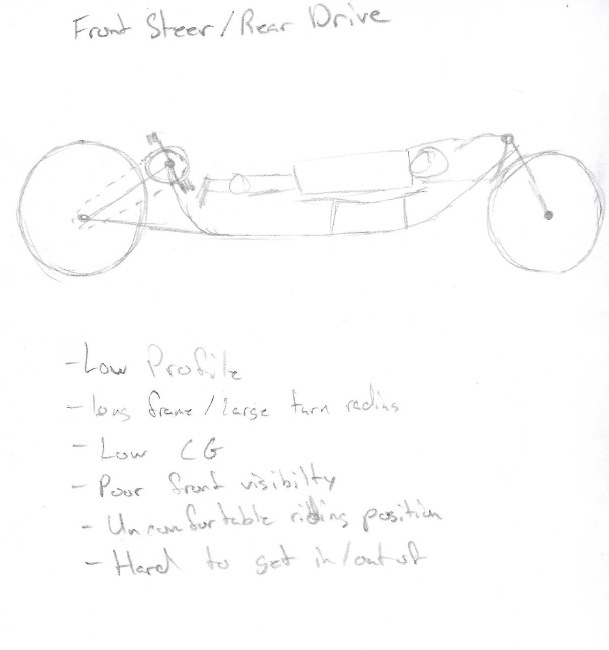 Front Steer/Rear Drive
- Low Profile
- long frame/large turn radius
- Low CG
- Poor front visibilty
- Uncomfortable riding position
- Hard to get in/out of